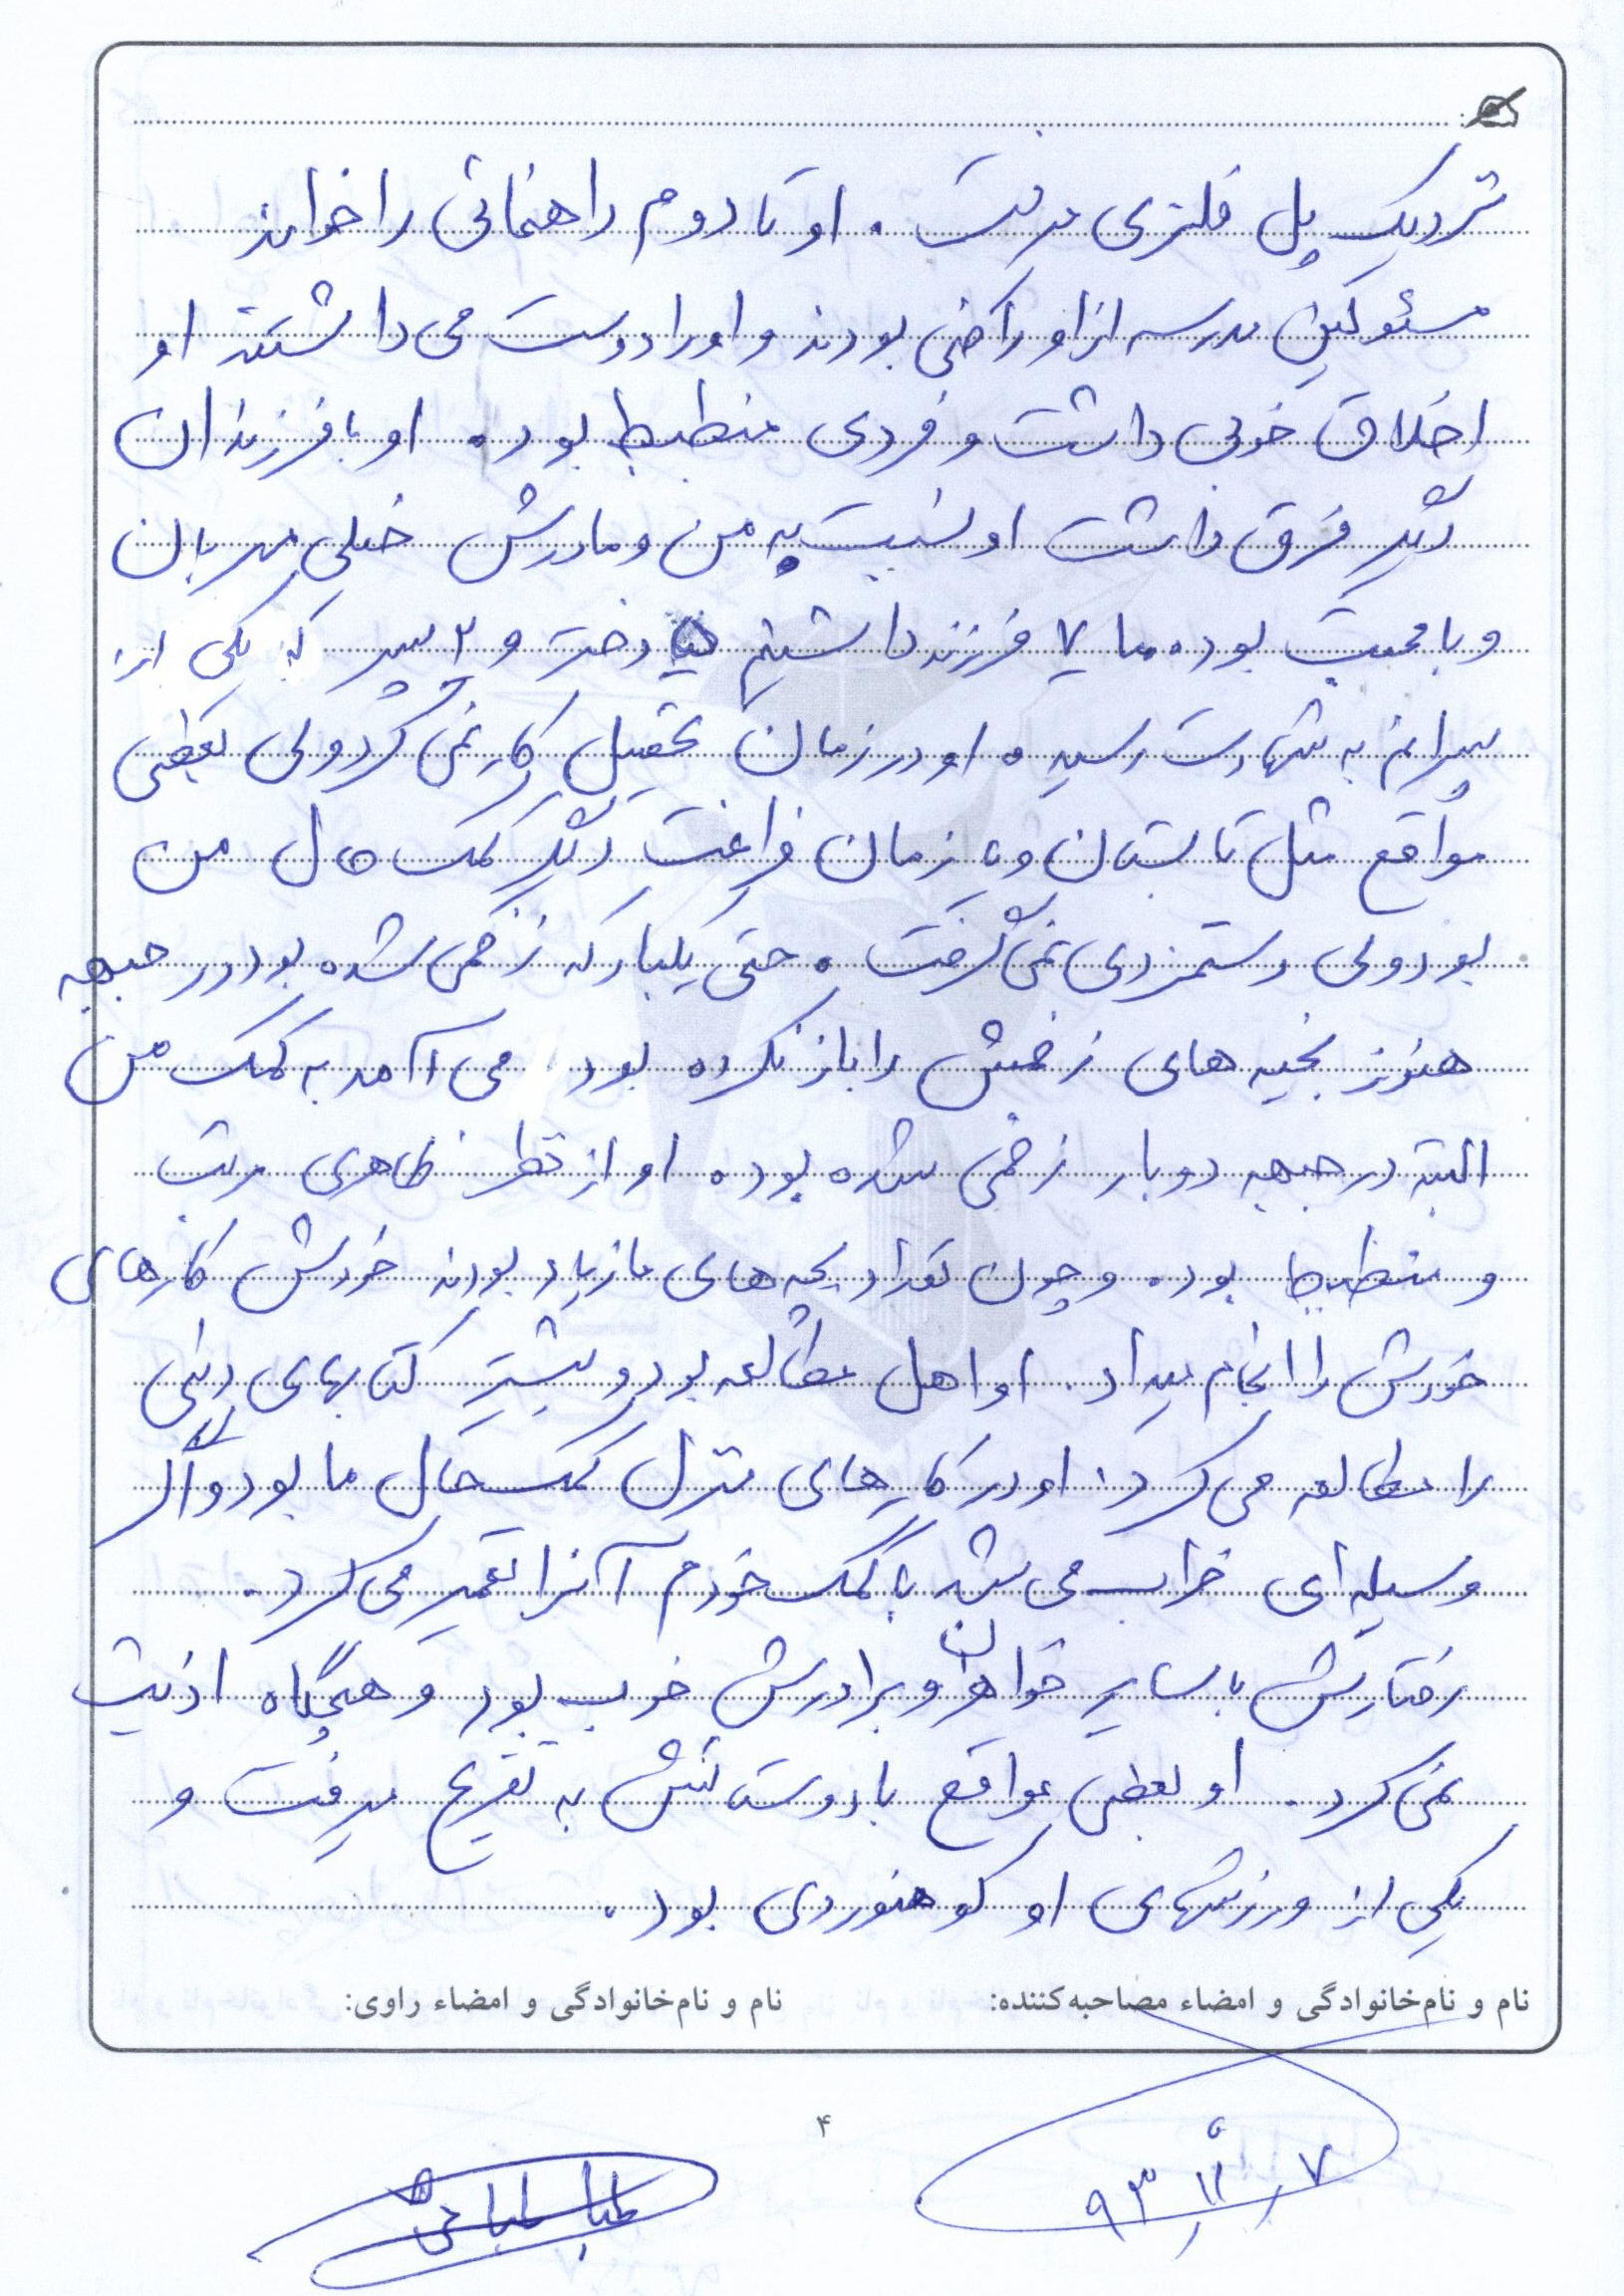 نزدیک پل فلزی میرفت. او تا دوم راهنمائی را خواند
مسئولین مدرسه از او راضی بودند و او را دوست می داشتند او
اخلاق خوبی داشت و فردی منظبط بود. او با فرزندان
دیگر فرق داشت او نسبت به من و مادرش خیلی مهربان
و با محبت بود. ما ۷ فرزند داشتیم دختر و ۲ پسر که یکی از
پسرانم به شهادت رسید. او در زمان تحصیل کار نمی کرد ولی بعظی
مواقع مثل تابستان و یا زمان فراغت دیگر کمک حال من
بود ولی دستمزدی نمی گرفت. حتی یکبار که زخمی شده بود در جبهه
هنوز بخیه های زخمش را باز نکرده بود می آمد به کمک من
البته در جبهه دوبار زخمی شده بود. او از نظر ظاهری مرتب
و منظبط بود. و چون تعداد بچه های ما زیاد بودند خودش کارهای
خودش را انجام میداد. او اهل مطالعه بود و بیشتر کتابهای دینی
را مطالعه می کرد. او در کارهای منزل کمک حال ما بود و اگر
وسیله ای خراب می شد با کمک خودم آنرا تعمیر می کرد.
رفتارش با سایر خواهران و برادرش خوب بود و هیچگاه اذیت
نمی کرد. او بعظی مواقع با دوستانش به تفریح میرفت و
یکی از ورزشهای او کوهنوردی بود.
نام و نام‌خانوادگی و امضاء مصاحبه‌کننده: نام و نام‌خانوادگی و امضاء راوی:
۴
۹۳/۱۱/۷
طباطبائی